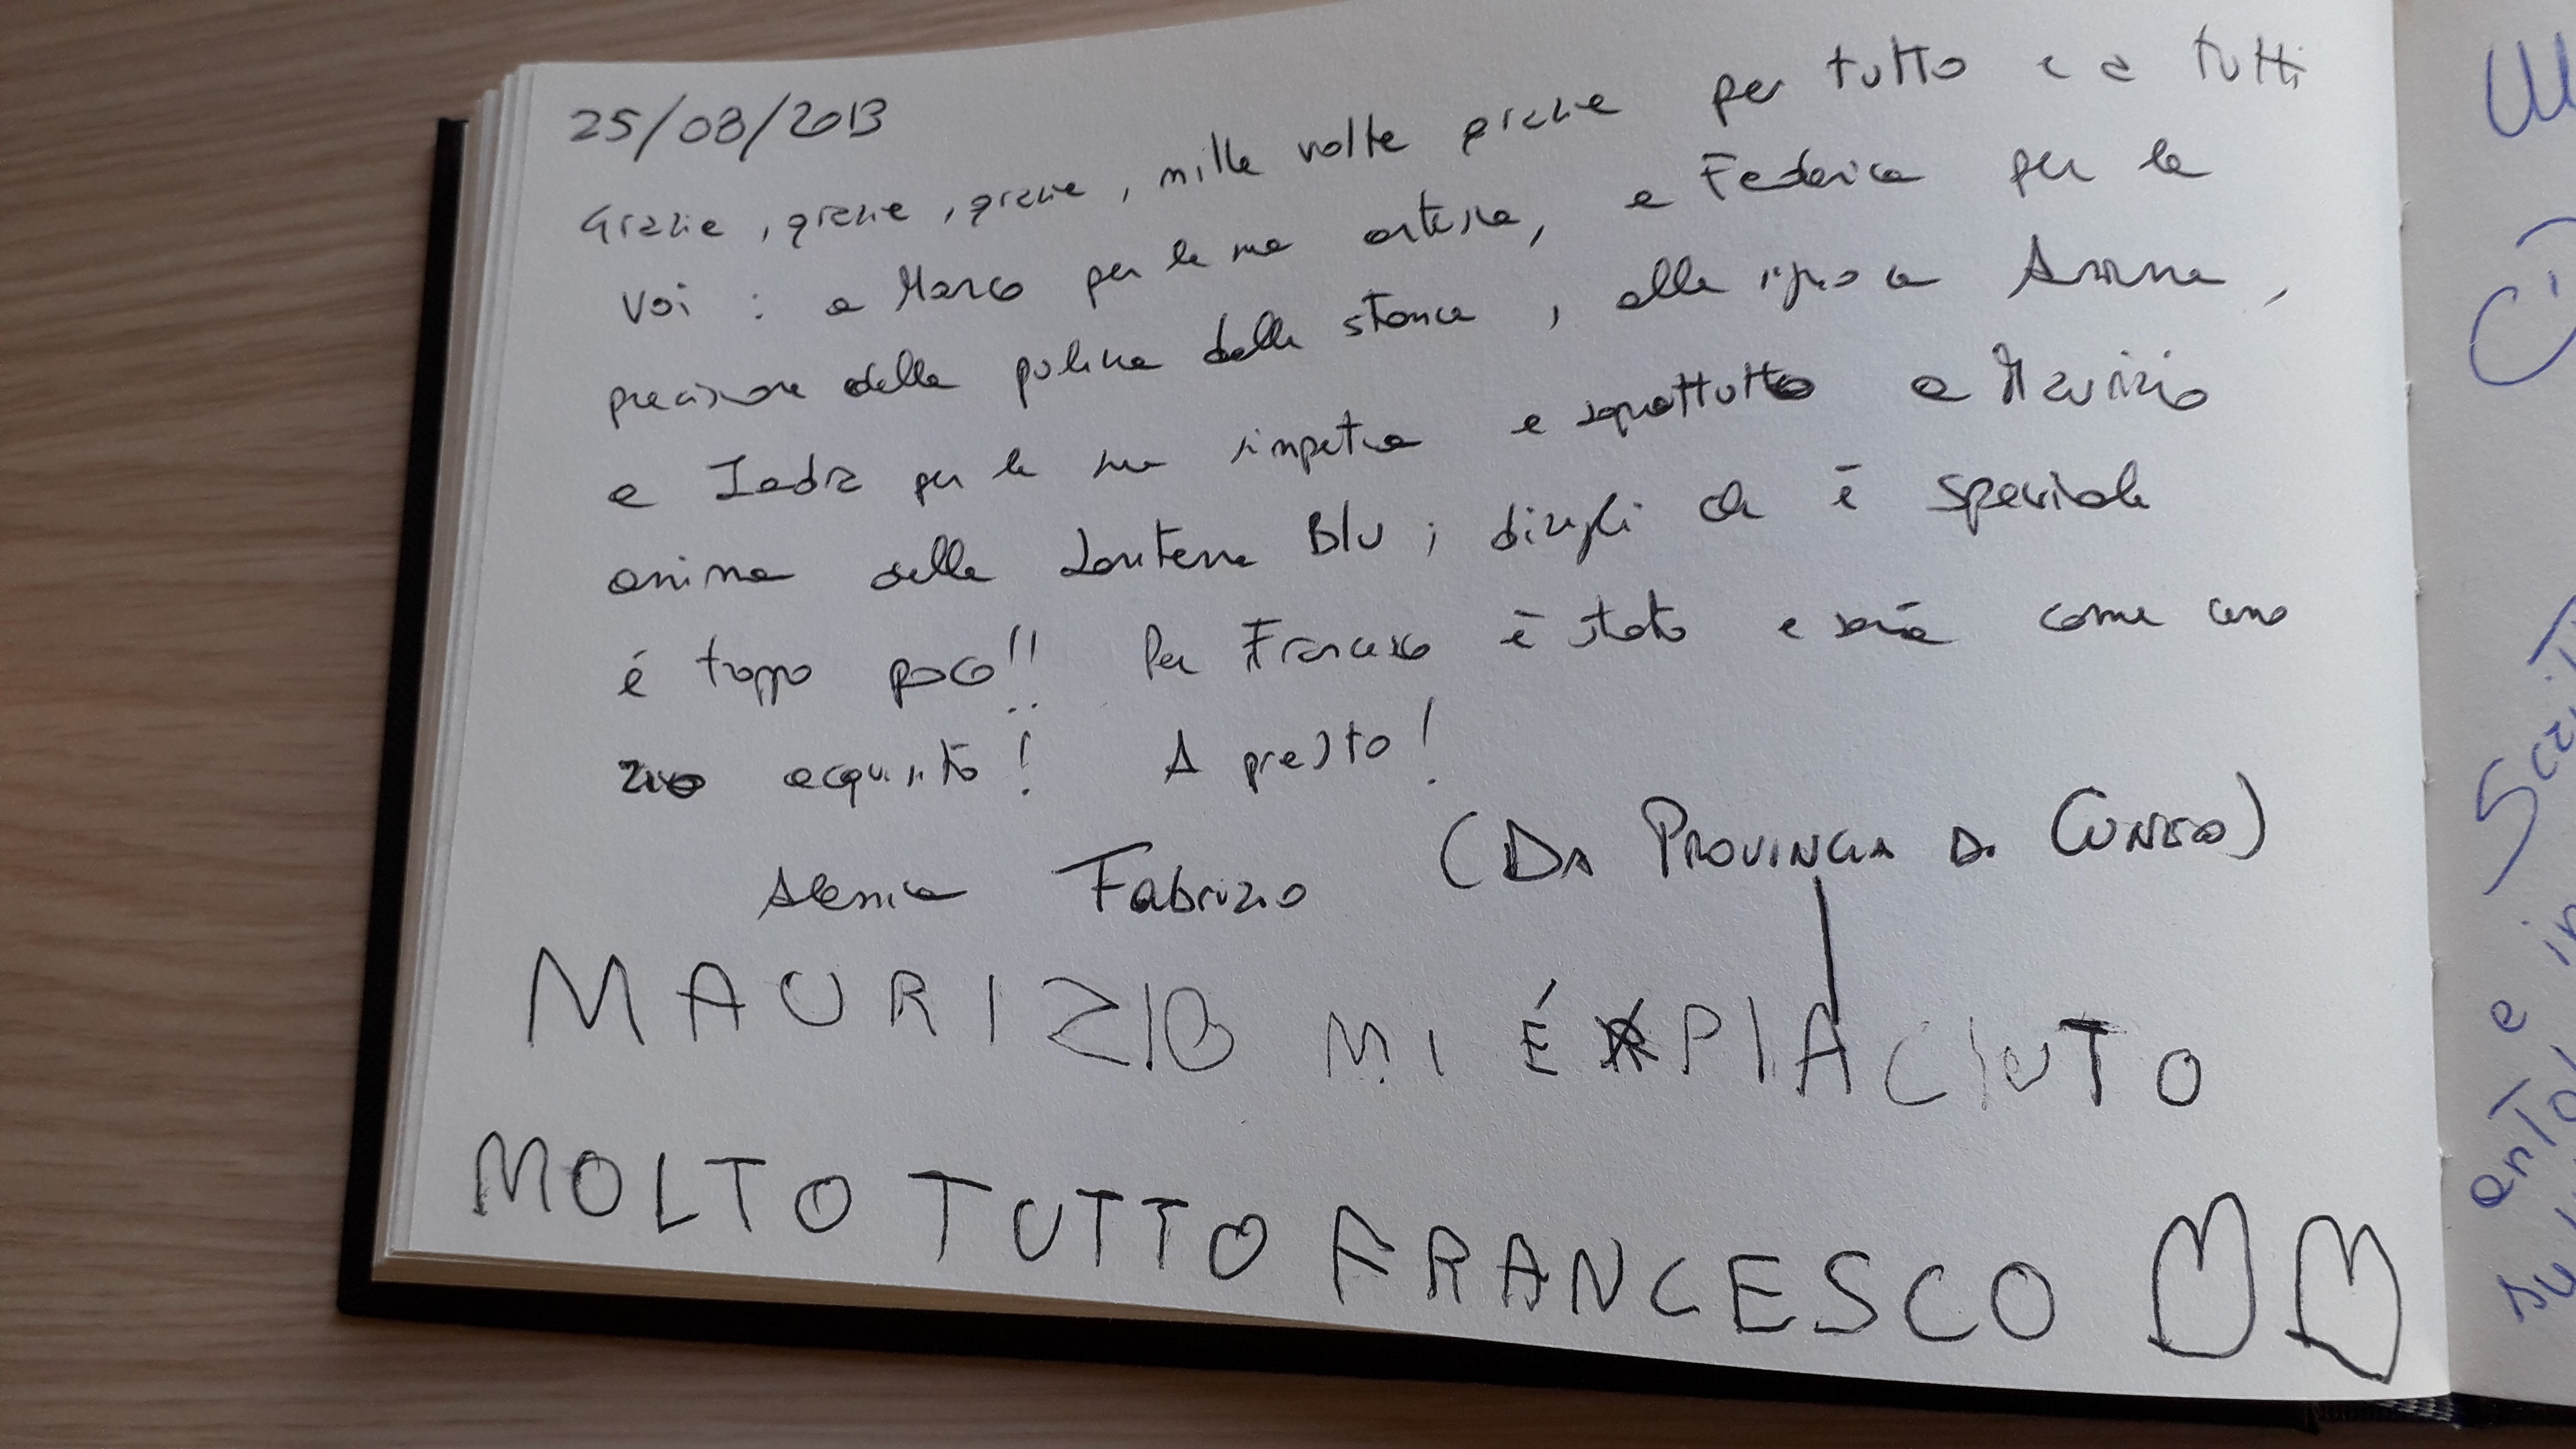 25/08/2013
Grazie, grazie, grazie, mille volte grazie per tutto e a tutti
voi : a Marco per la sua cortesia, a Federica per la
precisione della pulizia delle stanze, alla signora Anna,
a Jada per la sua simpatia e soprattutto a Maurizio
anima della Lanterna Blu; dirgli che è speciale
é troppo poco!! Per Francesco è stato e sarà come uno
zio acquisito! A presto!
Alessia Fabrizio (DA PROVINCIA DI CUNEO)
MAURIZIO MI É PIACIUTO
MOLTO TUTTO FRANCESCO